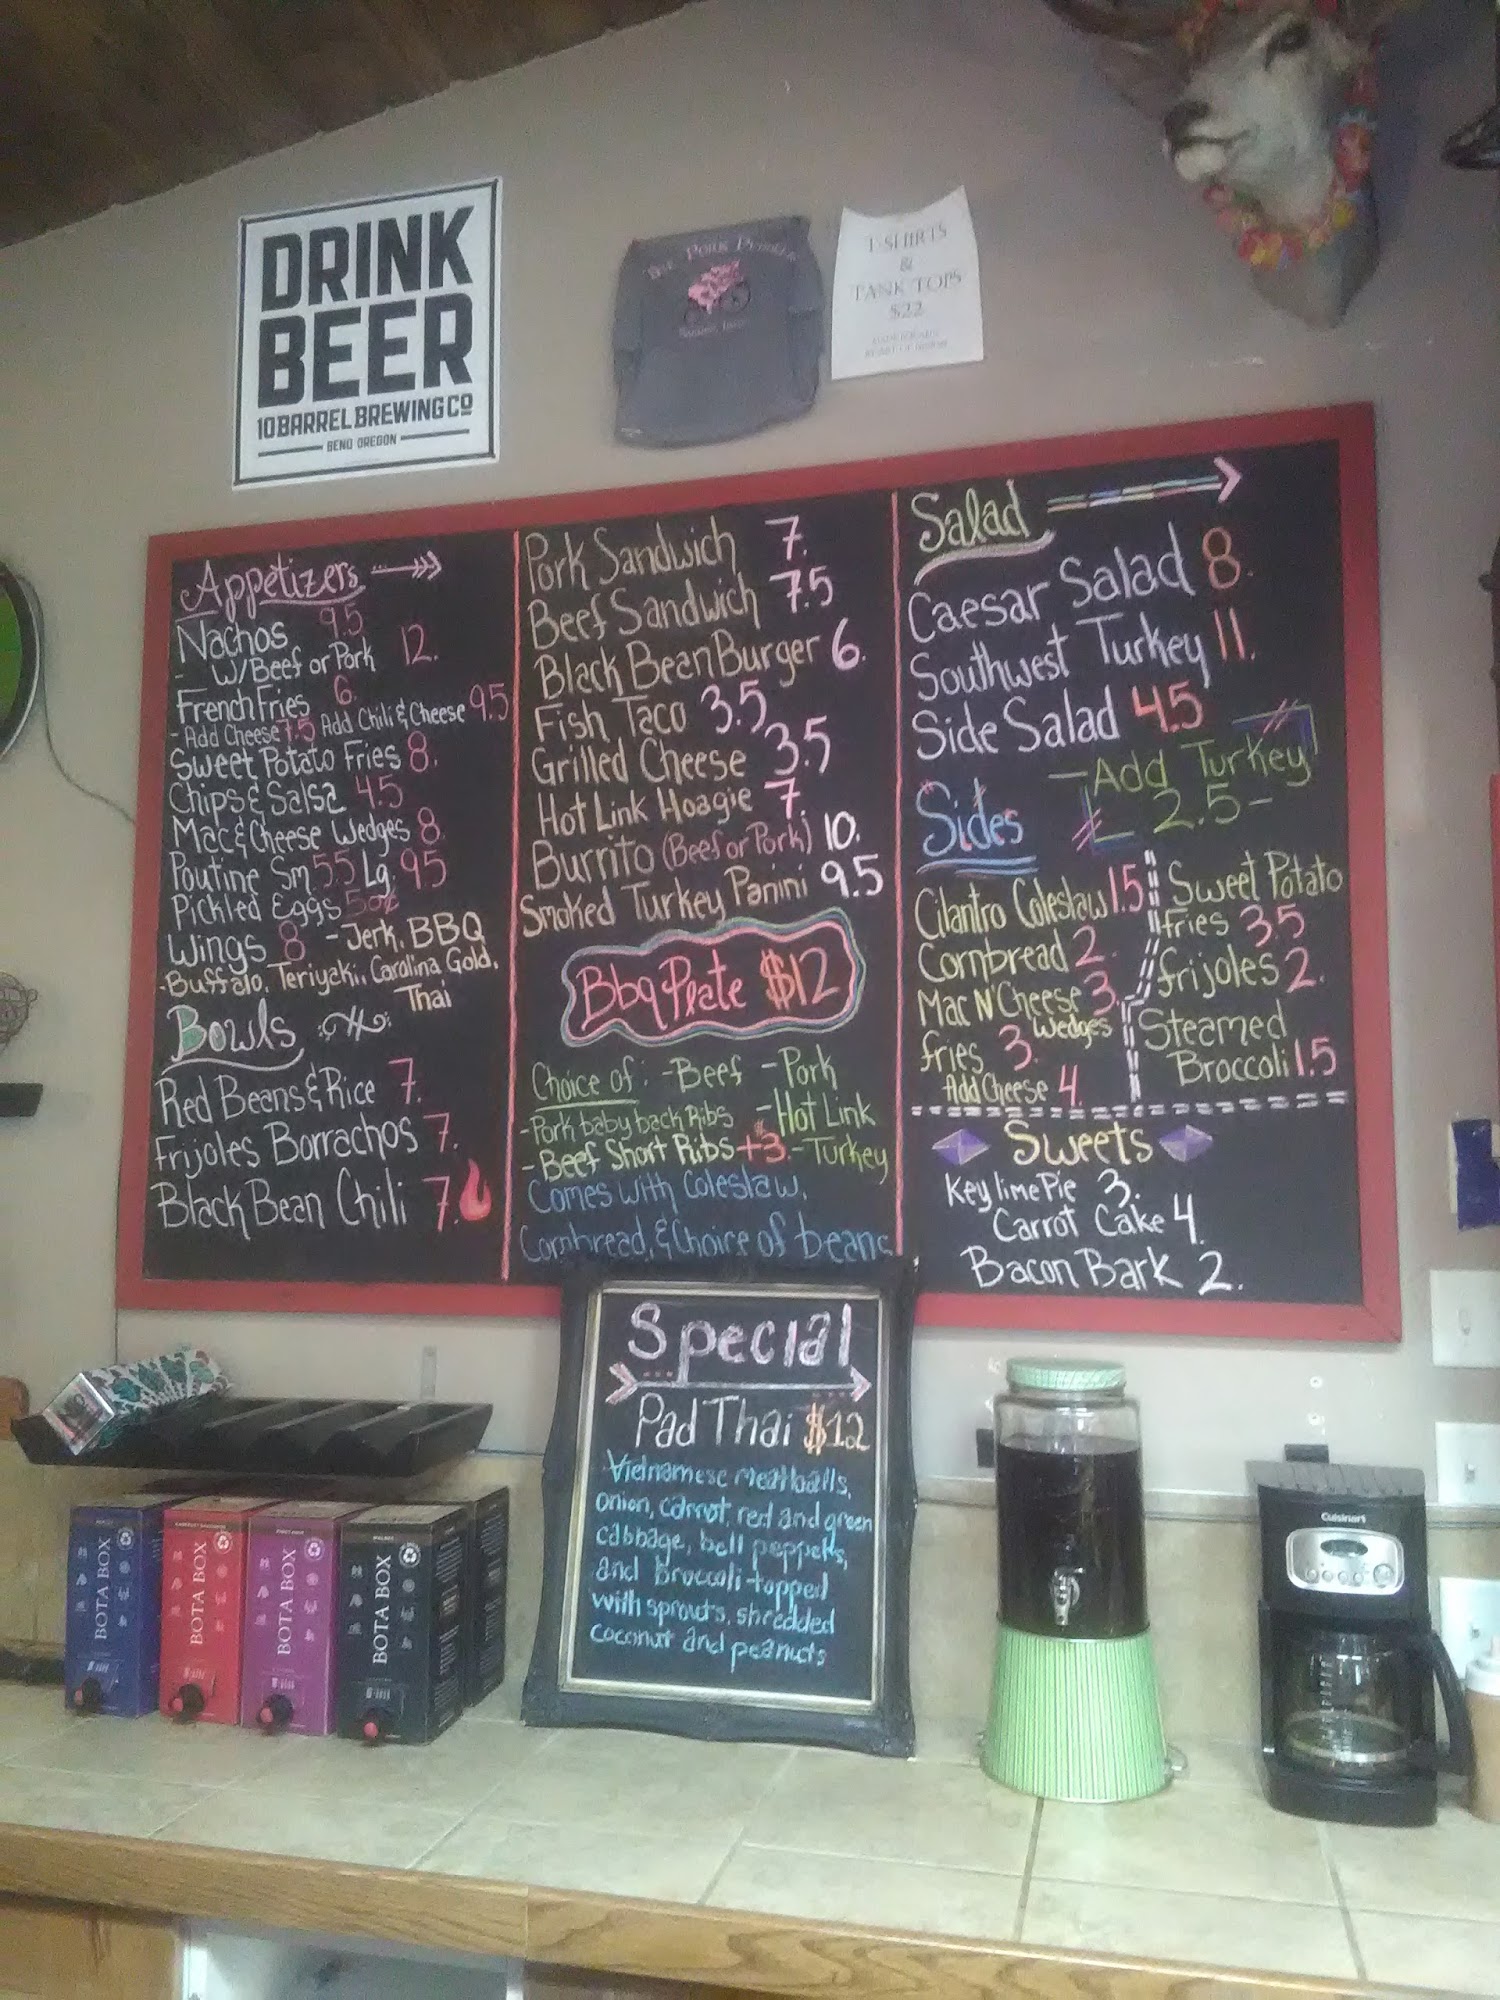 DRINK
BEER
10 BARREL BREWING CO
BEND OREGON
T-SHIRTS
&
TANK TOPS
$22
Appetizers
Nachos 9.5
- w/Beef or Pork 12.
French Fries 6.
- Add Cheese 7.5 Add Chili & Cheese 9.5
Sweet Potato Fries 8.
Chips & Salsa 4.5
Mac & Cheese Wedges 8.
Poutine Sm 5.5 Lg. 9.5
Pickled Eggs 50¢
Wings 8 - Jerk, BBQ
- Buffalo, Teriyaki, Carolina Gold,
Thai
Bowls
Red Beans & Rice 7.
Frijoles Borrachos 7.
Black Bean Chili 7.
Pork Sandwich 7.
Beef Sandwich 7.5
Black Bean Burger 6.
Fish Taco 3.5
Grilled Cheese 3.5
Hot Link Hoagie 7.
Burrito (Beef or Pork) 10.
Smoked Turkey Panini 9.5
Bbq Plate $12
Choice of: - Beef - Pork
- Pork baby back Ribs - Hot Link
- Beef Short Ribs +$3. - Turkey
Comes with Coleslaw,
Cornbread, & Choice of beans
Salad
Caesar Salad 8.
Southwest Turkey 11.
Side Salad 4.5
- Add Turkey
2.5 -
Sides
Cilantro Coleslaw 1.5
Cornbread 2.
Mac N' Cheese 3.
Wedges
fries 3.
Add Cheese 4.
Sweet Potato
fries 3.5
frijoles 2.
Steamed
Broccoli 1.5
Sweets
Key lime Pie 3.
Carrot Cake 4.
Bacon Bark 2.
Special
Pad Thai $12
Vietnamese meatballs,
onion, carrot, red and green
cabbage, bell peppers,
and broccoli topped
with sprouts, shredded
coconut and peanuts
BOTA BOX
BOTA BOX
BOTA BOX
BOTA BOX
Cuisinart